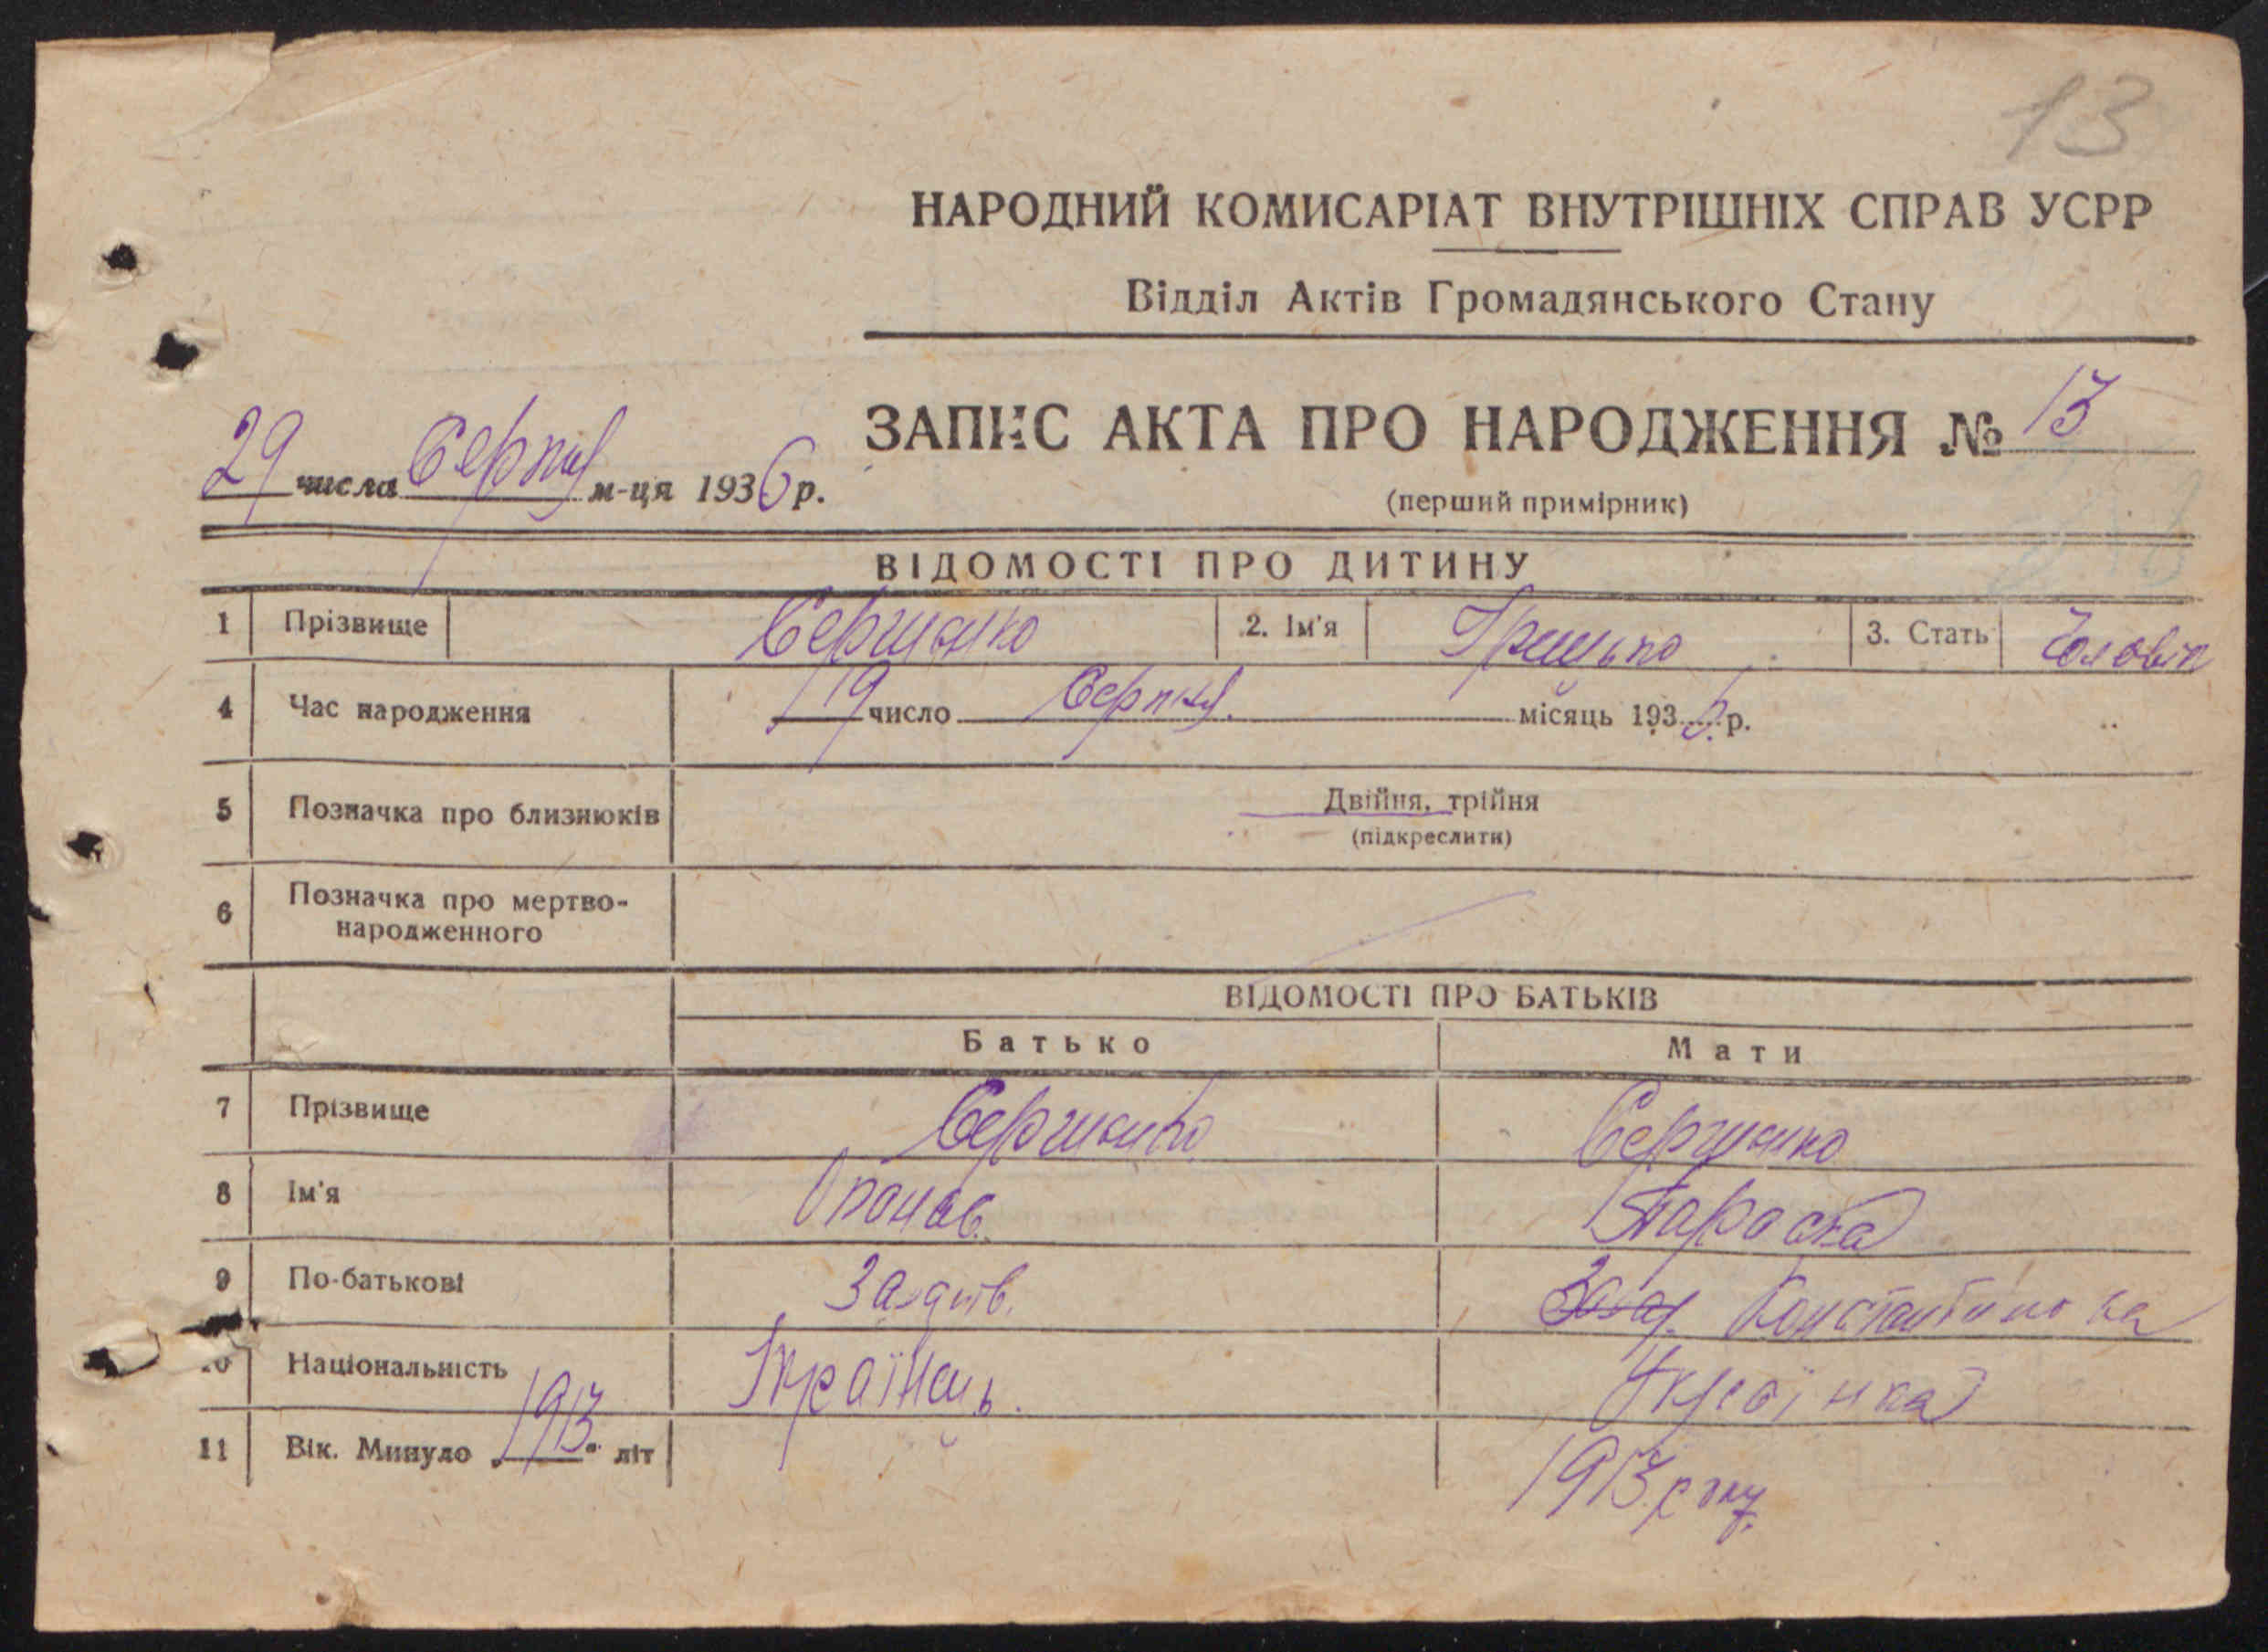 13
НАРОДНИЙ КОМИСАРІАТ ВНУТРІШНІХ СПРАВ УСРР
Відділ Актів Громадянського Стану
ЗАПИС АКТА ПРО НАРОДЖЕННЯ № 13
29 числа Серпня м-ця 1936 р.
(перший примірник)
ВІДОМОСТІ ПРО ДИТИНУ
1 Прізвище 2. Ім'я Грицько 3. Стать Чоловік
4 Час народження 19 число Серпня місяць 1936 р.
5 Позначка про близнюків Двійня, трійня
(підкреслити)
6 Позначка про мертво-
народженного
ВІДОМОСТІ ПРО БАТЬКІВ
Батько Мати
7 Прізвище
8 Ім'я Опанас Параска
9 По-батькові Константиновна
10 Національність Українець. Українка
11 Вік. Минуло 1913 літ 1913 року.